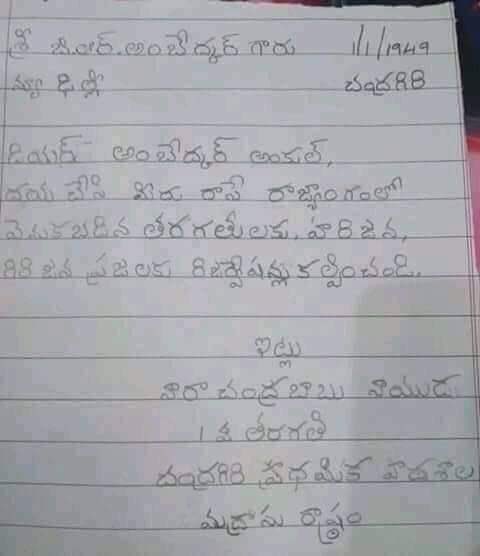 శ్రీ బి.ఆర్.అంబేద్కర్ గారు 1/1/1949
న్యూ ఢిల్లీ చంద్రగిరి
డియర్ అంబేద్కర్ అంకుల్,
దయ చేసి మీరు రాసే రాజ్యాంగంలో
వెనుకబడిన తరగతులకు, హరిజన,
గిరిజన ప్రజలకు రిజర్వేషన్లు కల్పించండి.
ఇట్లు
నారా చంద్రబాబు నాయుడు
1 వ తరగతి
చంద్రగిరి ప్రాథమిక పాఠశాల
మద్రాసు రాష్ట్రం